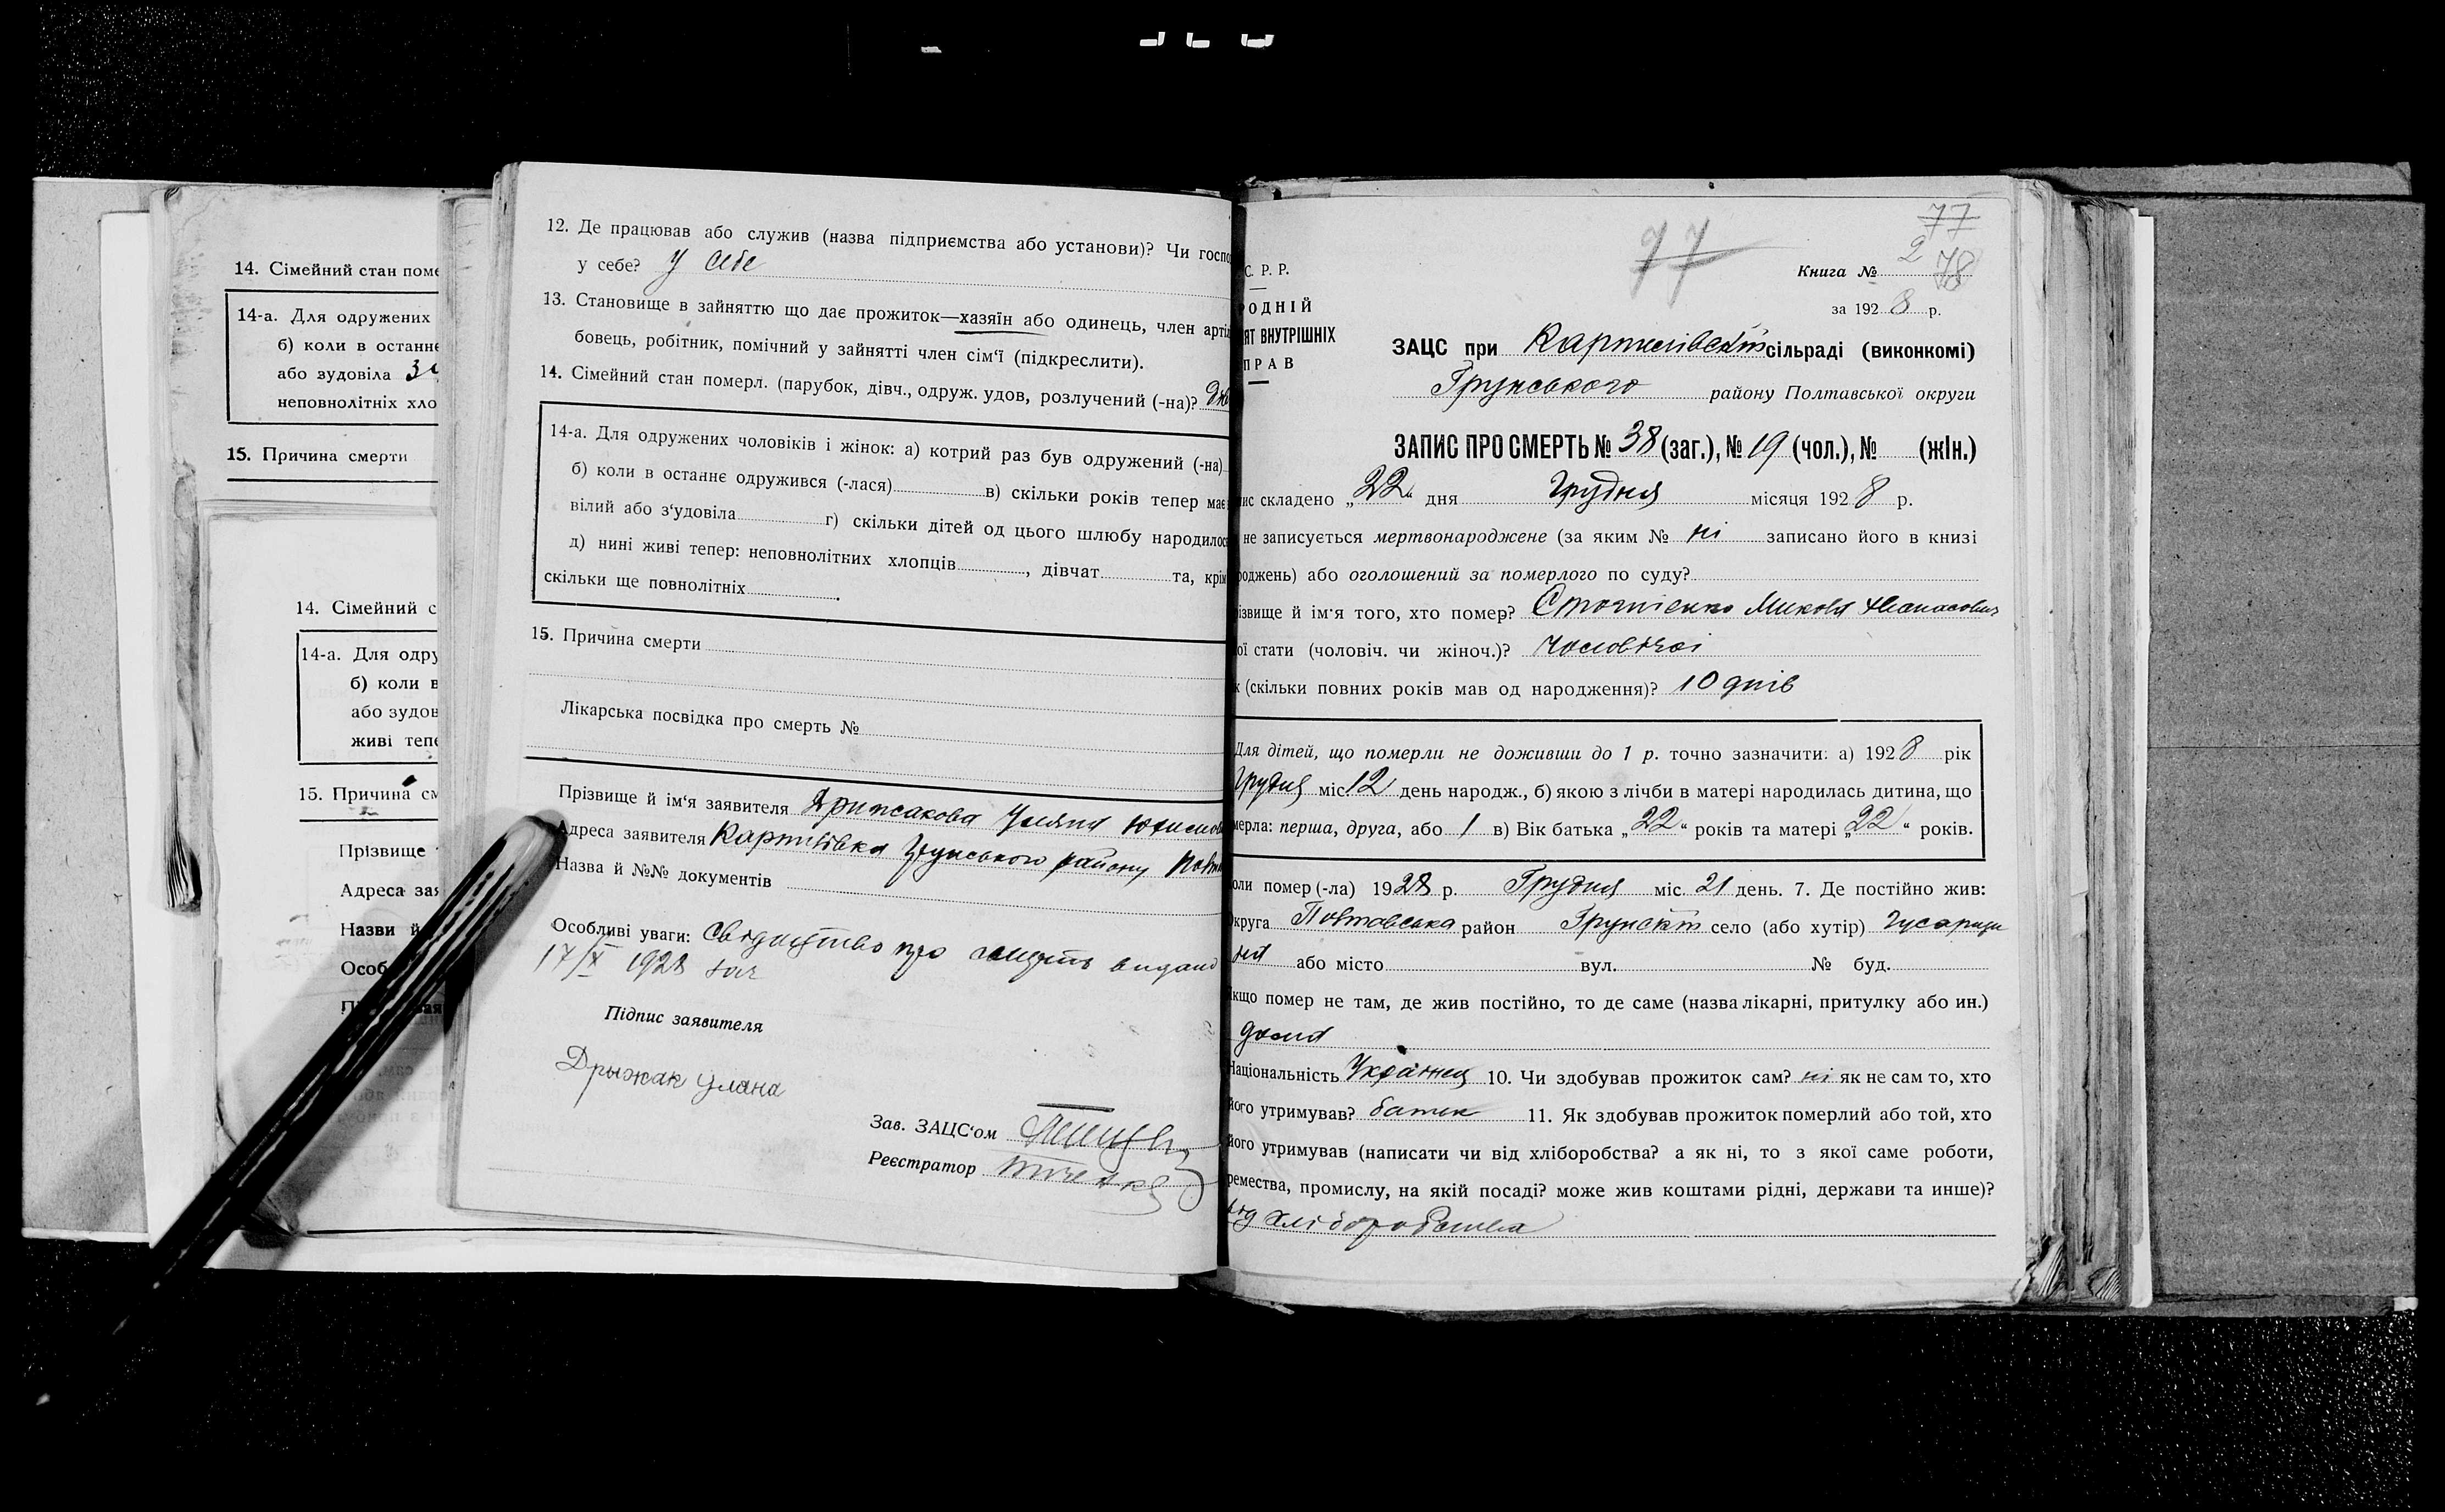 14. Сімейний стан поме
14-а. Для одружених
б) коли в останнє
або зудовіла
неповнолітніх хло
15. Причина смерти
14. Сімейний с
14-а. Для одру
б) коли в
або зудов
живі тепе
15. Причина см
Прізвище
Адреса зая
Назви й
Особ
12. Де працював або служив (назва підприємства або установи)? Чи госпо
у себе? у себе
13. Становище в зайняттю що дає прожиток—хазяїн або одинець, член артіл
бовець, робітник, помічний у зайнятті член сім'ї (підкреслити).
14. Сімейний стан померл. (парубок, дівч., одруж. удов, розлучений (-на)?
14-а. Для одружених чоловіків і жінок: а) котрий раз був одружений (-на)
б) коли в останнє одружився (-лася) в) скільки років тепер має
вілий або з'удовіла г) скільки дітей од цього шлюбу народилос
д) нині живі тепер: неповнолітних хлопців , дівчат та, крім
скільки ще повнолітніх .
15. Причина смерти
Лікарська посвідка про смерть №
Прізвище й ім'я заявителя Дрижакова Уляна
Адреса заявителя Картишівка Грунського району Полт
Назва й №№ документів
Особливі уваги: Свідоцтво про смерть видано
17/X 1928
Підпис заявителя
Дрыжак Уляна
Зав. ЗАЦС'ом
Реєстратор
77
77
Книга № 2 78
за 1928 р.
С. Р. Р.
РОДНІЙ
ЯТ ВНУТРІШНІХ
ПРАВ
ЗАЦС при сільраді (виконкомі)
Грунського району Полтавської округи
ЗАПИС ПРО СМЕРТЬ № 38 (заг.), № 19 (чол.), № (жін.)
пис складено „22" дня Грудня місяця 1928 р.
не записується мертвонароджене (за яким № ні записано його в книзі
роджень) або оголошений за померлого по суду?
різвище й ім'я того, хто помер? Микола Панасович
ої стати (чоловіч. чи жіноч.)? чоловічої
к (скільки повних років мав од народження)? 10 днів
Для дітей, що померли не доживши до 1 р. точно зазначити: а) 1928 рік
Грудня міс. 12 день народж., б) якою з лічби в матері народилась дитина, що
мерла: перша, друга, або 1 в) Вік батька „22" років та матері „22" років.
оли помер (-ла) 1928 р. Грудня міс. 21 день. 7. Де постійно жив:
Округа Полтавська район Грунськ. село (або хутір)
або місто вул. № буд.
Якщо помер не там, де жив постійно, то де саме (назва лікарні, притулку або ин.)
дома
Національність Українец 10. Чи здобував прожиток сам? ні як не сам то, хто
його утримував? батьк 11. Як здобував прожиток померлий або той, хто
його утримував (написати чи від хліборобства? а як ні, то з якої саме роботи,
ремества, промислу, на якій посаді? може жив коштами рідні, держави та инше)?
від хліборобства